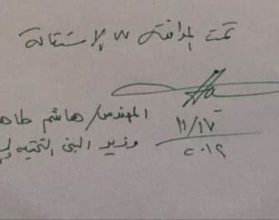 تمت الموافقة على الإستقالة
المهندس/ هاشم طاهر
١١/١٧
وزير البنى التحتيه
٢٠١٩